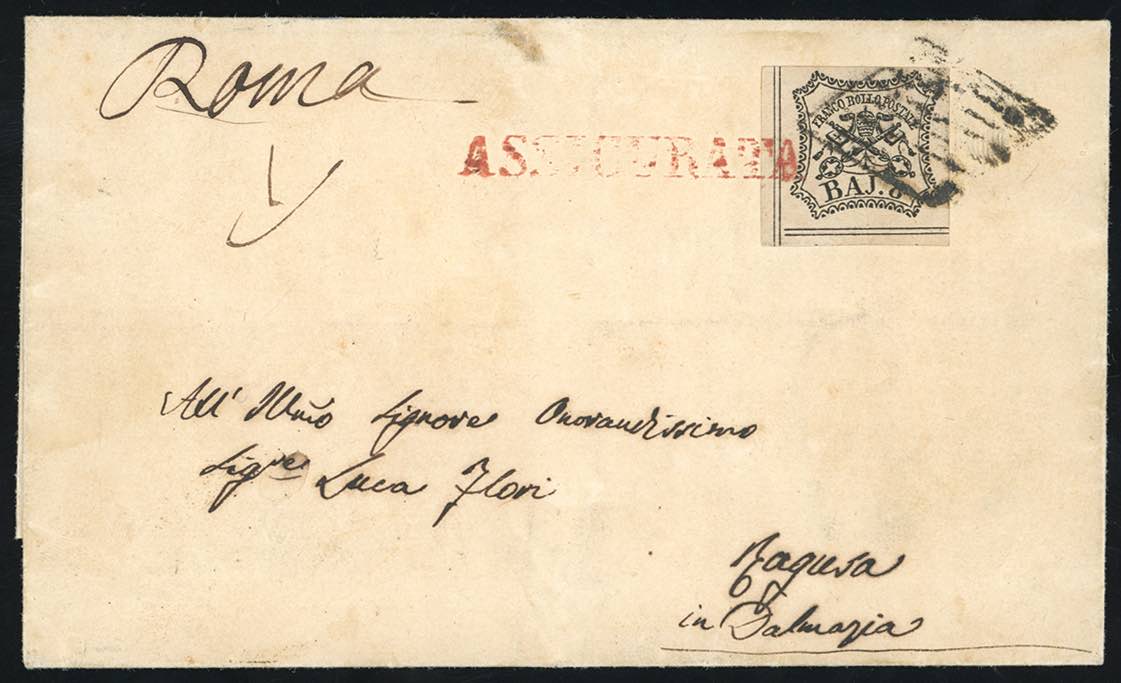 Roma
ASSICURATA
FRANCO BOLLO POSTALE
BAJ. 8
All' Illmo Signore Onorandissimo
Sigre Luca Flori
Ragusa
in Dalmazia